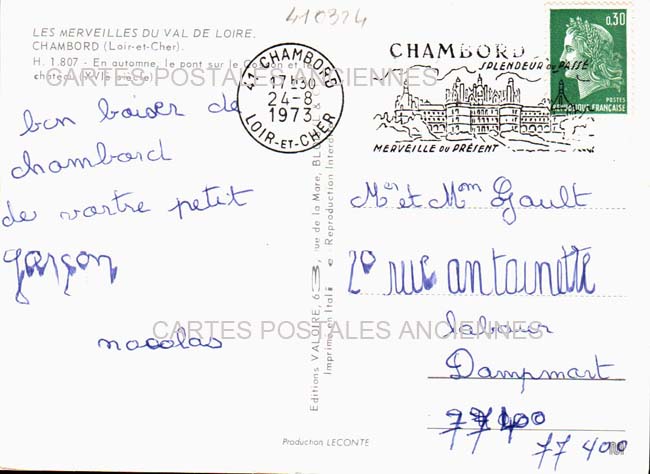 410324
LES MERVEILLES DU VAL DE LOIRE.
CHAMBORD (Loir-et-Cher).
H. 1.807 - En automne, le pont sur le Cosson et le
château (XVIe siècle)
CARTES POSTALES ANCIENNES
41-CHAMBORD
17H30
24-8
1973
LOIR-ET-CHER
CHAMBORD
SPLENDEUR du PASSÉ
MERVEILLE du PRÉSENT
0,30
POSTES
FRANÇAISE
bon baiser de
chambord
de vostre petit
garçon
nocolas
Editions VALOIRE, rue de la Mare,
Imprimé en Reproduction
Mer et Mm Gault
20 rue antoinette
labouer
Dampmart
77400
77400
CARTES POSTALES ANCIENNES
Production LECONTE